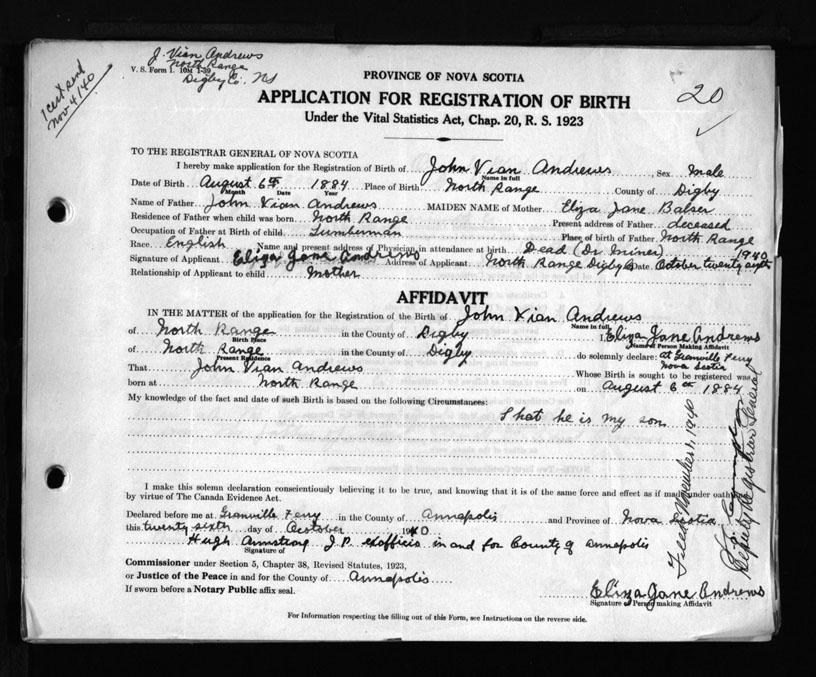 J. Vian Andrews
North Range
V. S. Form 1. 10M 1-39
Digby Co. NS
1 cert send
Nov 4/40
20
PROVINCE OF NOVA SCOTIA
APPLICATION FOR REGISTRATION OF BIRTH
Under the Vital Statistics Act, Chap. 20, R. S. 1923
TO THE REGISTRAR GENERAL OF NOVA SCOTIA
I hereby make application for the Registration of Birth of John Vian Andrews Sex Male
Name in full
Date of Birth August 6th 1884 Place of Birth North Range County of Digby
Month Date Year
Name of Father John Vian Andrews MAIDEN NAME of Mother Eliza Jane Balser
Residence of Father when child was born North Range Present address of Father deceased
Occupation of Father at Birth of child Lumberman Place of birth of Father North Range
Race English Name and present address of Physician in attendance at birth Dead (Dr. Miner) 1940
Signature of Applicant Eliza Jane Andrews Address of Applicant North Range Digby Co Date October twenty sixth
Relationship of Applicant to child mother
AFFIDAVIT
IN THE MATTER of the application for the Registration of the Birth of John Vian Andrews
Name in full
of North Range in the County of Digby I, Eliza Jane Andrews
Birth Place Name of Person Making Affidavit
of North Range in the County of Digby do solemnly declare: at Granville Ferry
Present Residence Nova Scotia
That John Vian Andrews Whose Birth is sought to be registered was
born at North Range on August 6th 1884
My knowledge of the fact and date of such Birth is based on the following Circumstances:
That he is my son
I make this solemn declaration conscientiously believing it to be true, and knowing that it is of the same force and effect as if made under oath
by virtue of The Canada Evidence Act.
Declared before me at Granville Ferry in the County of Annapolis and Province of Nova Scotia
this twenty sixth day of October 1940
Hugh Armstrong J.P. exofficio in and for County of Annapolis
Signature of
Commissioner under Section 5, Chapter 38, Revised Statutes, 1923,
or Justice of the Peace in and for the County of Annapolis
If sworn before a Notary Public affix seal.
Eliza Jane Andrews
Signature of Person making Affidavit
For Information respecting the filling out of this Form, see Instructions on the reverse side.
Filed November 1, 1940
Deputy Registrar General